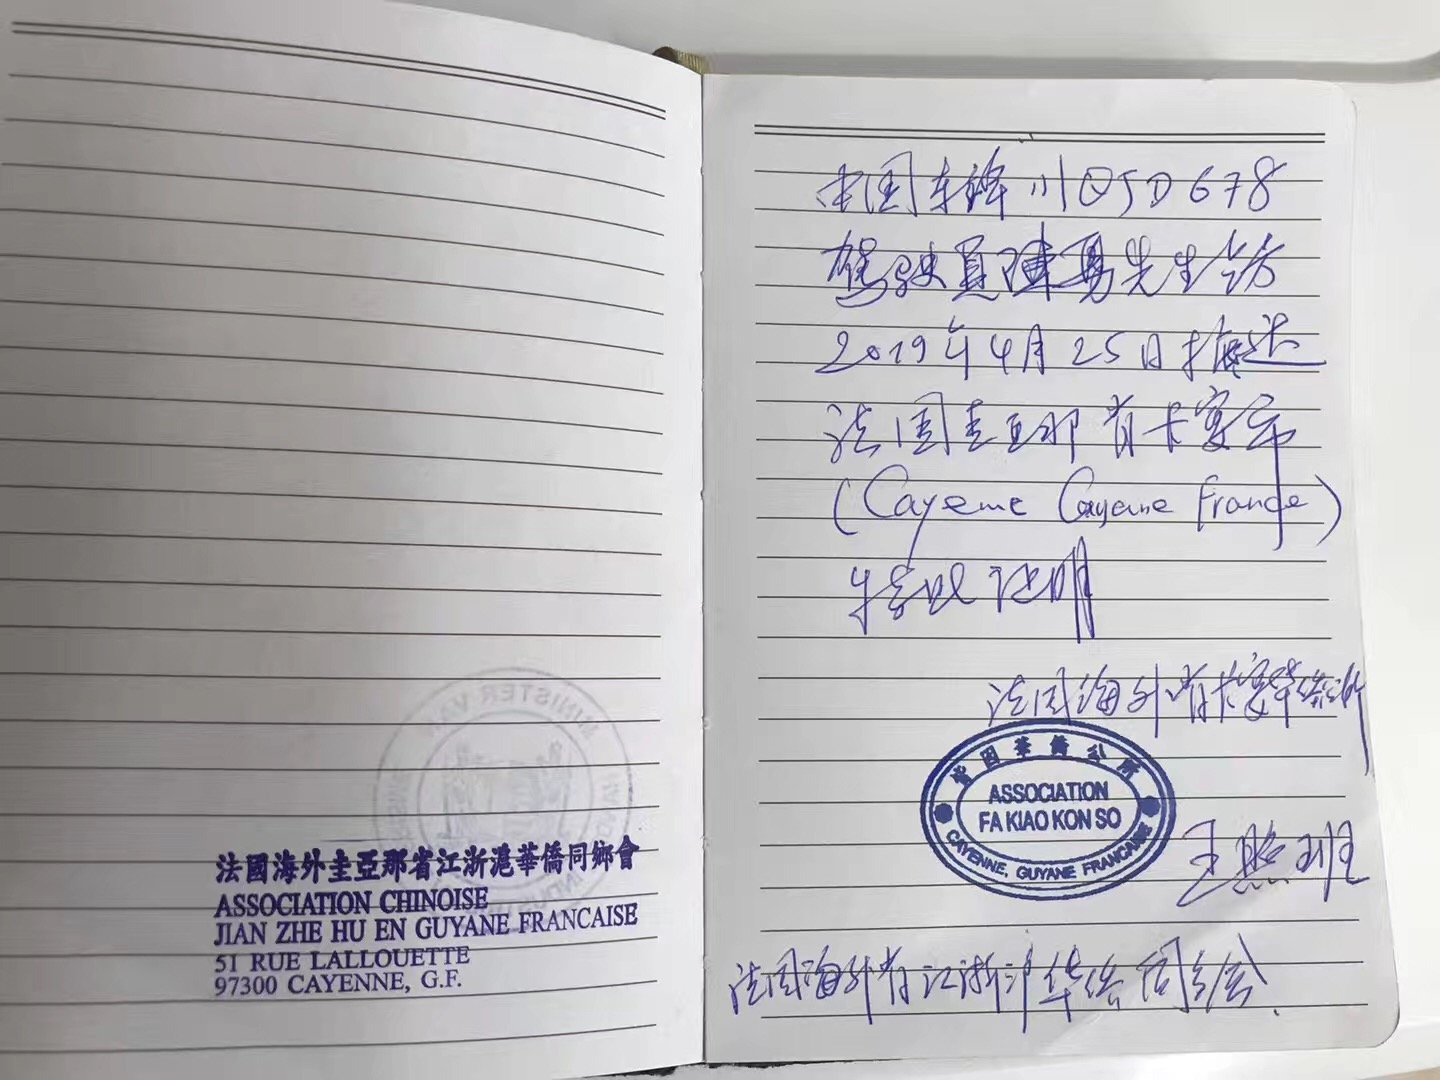 法國海外圭亞那省江浙滬華僑同鄉會
ASSOCIATION CHINOISE
JIAN ZHE HU EN GUYANE FRANCAISE
51 RUE LALLOUETTE
97300 CAYENNE, G.F.
MINISTER VAN
中国车牌川QJD678
驾驶员陳勇先生於
2019年4月25日抵达
法国圭亚那省卡宴市
(Cayenne Cayenne France)
特此证明
法国海外省卡宴华侨公所
華僑公所
ASSOCIATION
FA KIAO KON SO
CAYENNE, GUYANE FRANCAISE
王照班
法国海外省江浙沪华侨同乡会